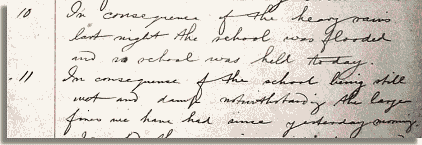 10 In consequence of the heavy rains
last night the school was flooded
and no school was held today.
11 In consequence of the school being still
wet and damp notwithstanding the large
fires we have had since yesterday morning.